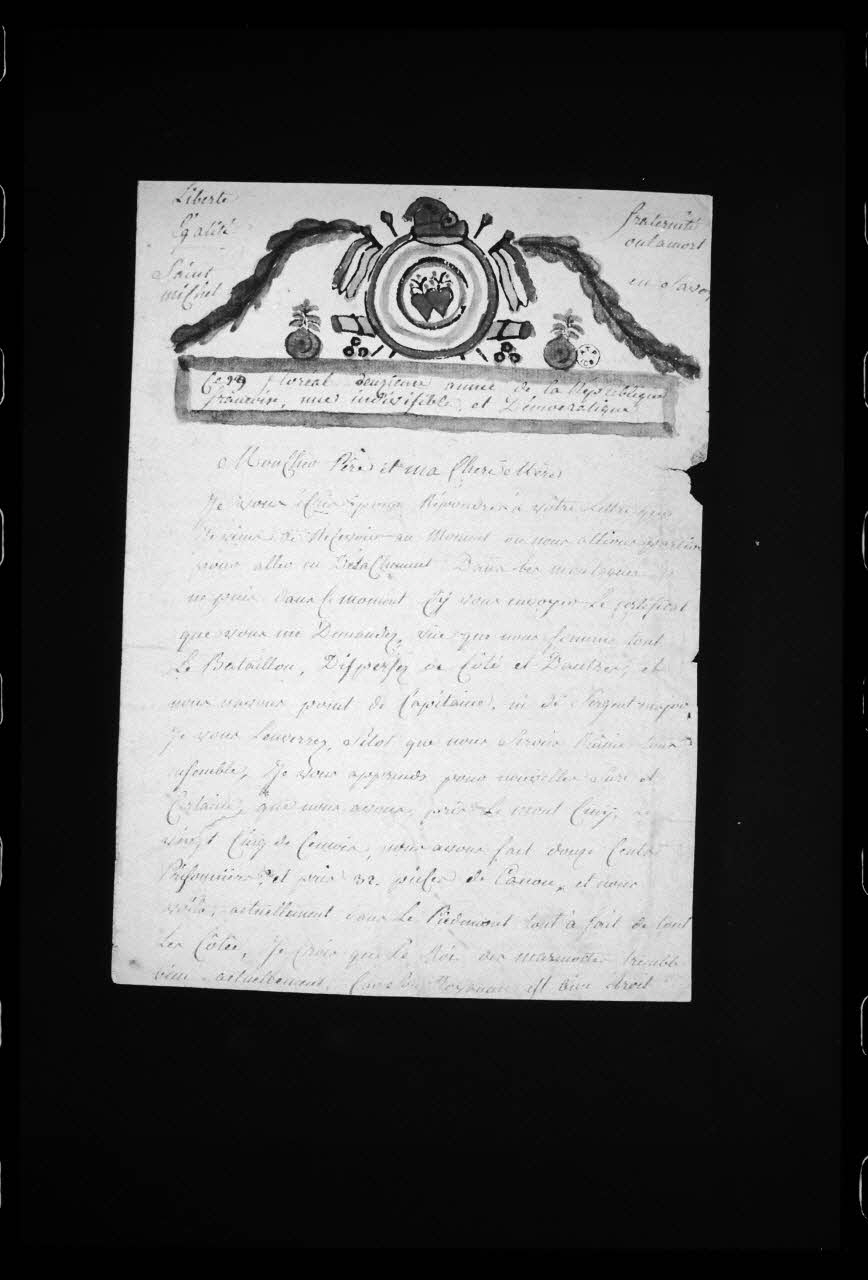 Liberté
Egalité
Saint
michel
fraternité
oulamort
en Savo
Ce 29 floréal deuzieme annee de la Republique
francoise, une indivisible, et Démocratique
Mon Cher Pére et ma Chere Mere
Je vous Ecris pour Répondre à vôtre Lettre que
Je viens de Recevoir au Moment ou nous allions partir
pour aller en Détachement Dans les montagnes
ne puis dans le moment vous envoyer Le certificat
que vous me Demandez, vue que nous somme tout
Le Bataillon, Disperséz de Côté et Dautres, et
nous navons point de Capitaine, ni de Sergent major,
Je vous Lenverrez, Sitot que nous Serons Réunie tous
ensemble, Je vous apprends pour nouvelles Sure et
Certaine, que nous avons pris Le mont Ceny, Le
vingt Cinq de Ce mois, nous avons fait douze Cents
Prisonniers, et pris 32 pieces de Canon, et nous
voila, actuellement dans Le Piedmont tout à fait de tout
Les Côtée, Je Crois que Le Roi des marmotte tremble
bien actuellement, Car Son Royaume est bien droit